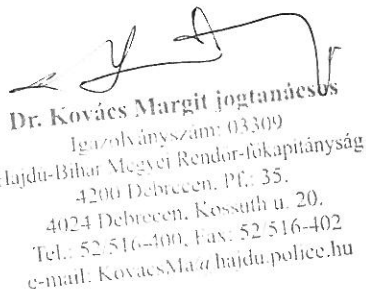 Dr. Kovács Margit jogtanácsos
Igazolványszám: 03309
Hajdu-Bihar Megyei Rendőr-főkapitányság
4200 Debrecen, Pf.: 35.
4024 Debrecen, Kossuth u. 20.
Tel.: 52/516-400, Fax: 52/516-402
e-mail: KovacsMa@hajdu.police.hu